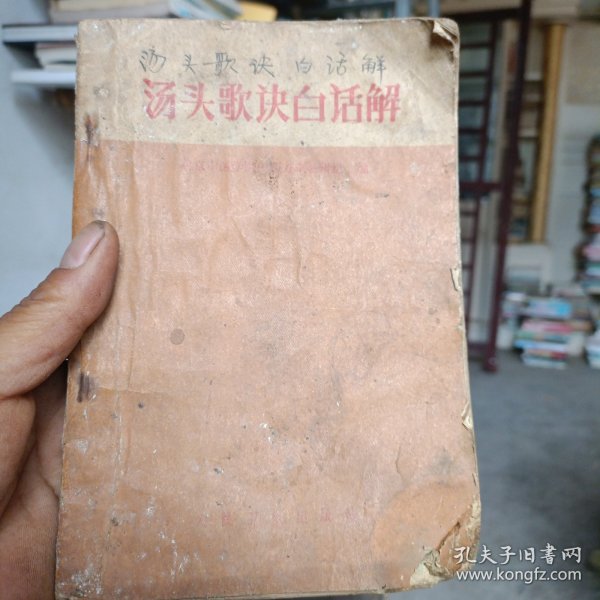 汤头歌诀白话解
汤头歌诀白话解
孔夫子旧书网
www.kongfz.com